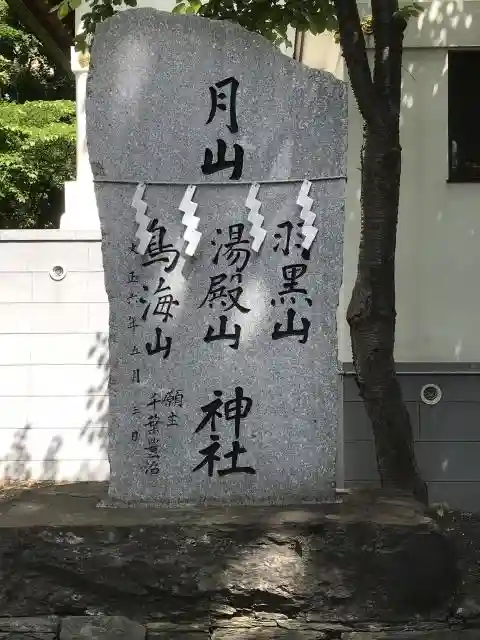 月山
羽黒山
湯殿山
鳥海山
神社
大正六年五月三日
願主
千葉豊治